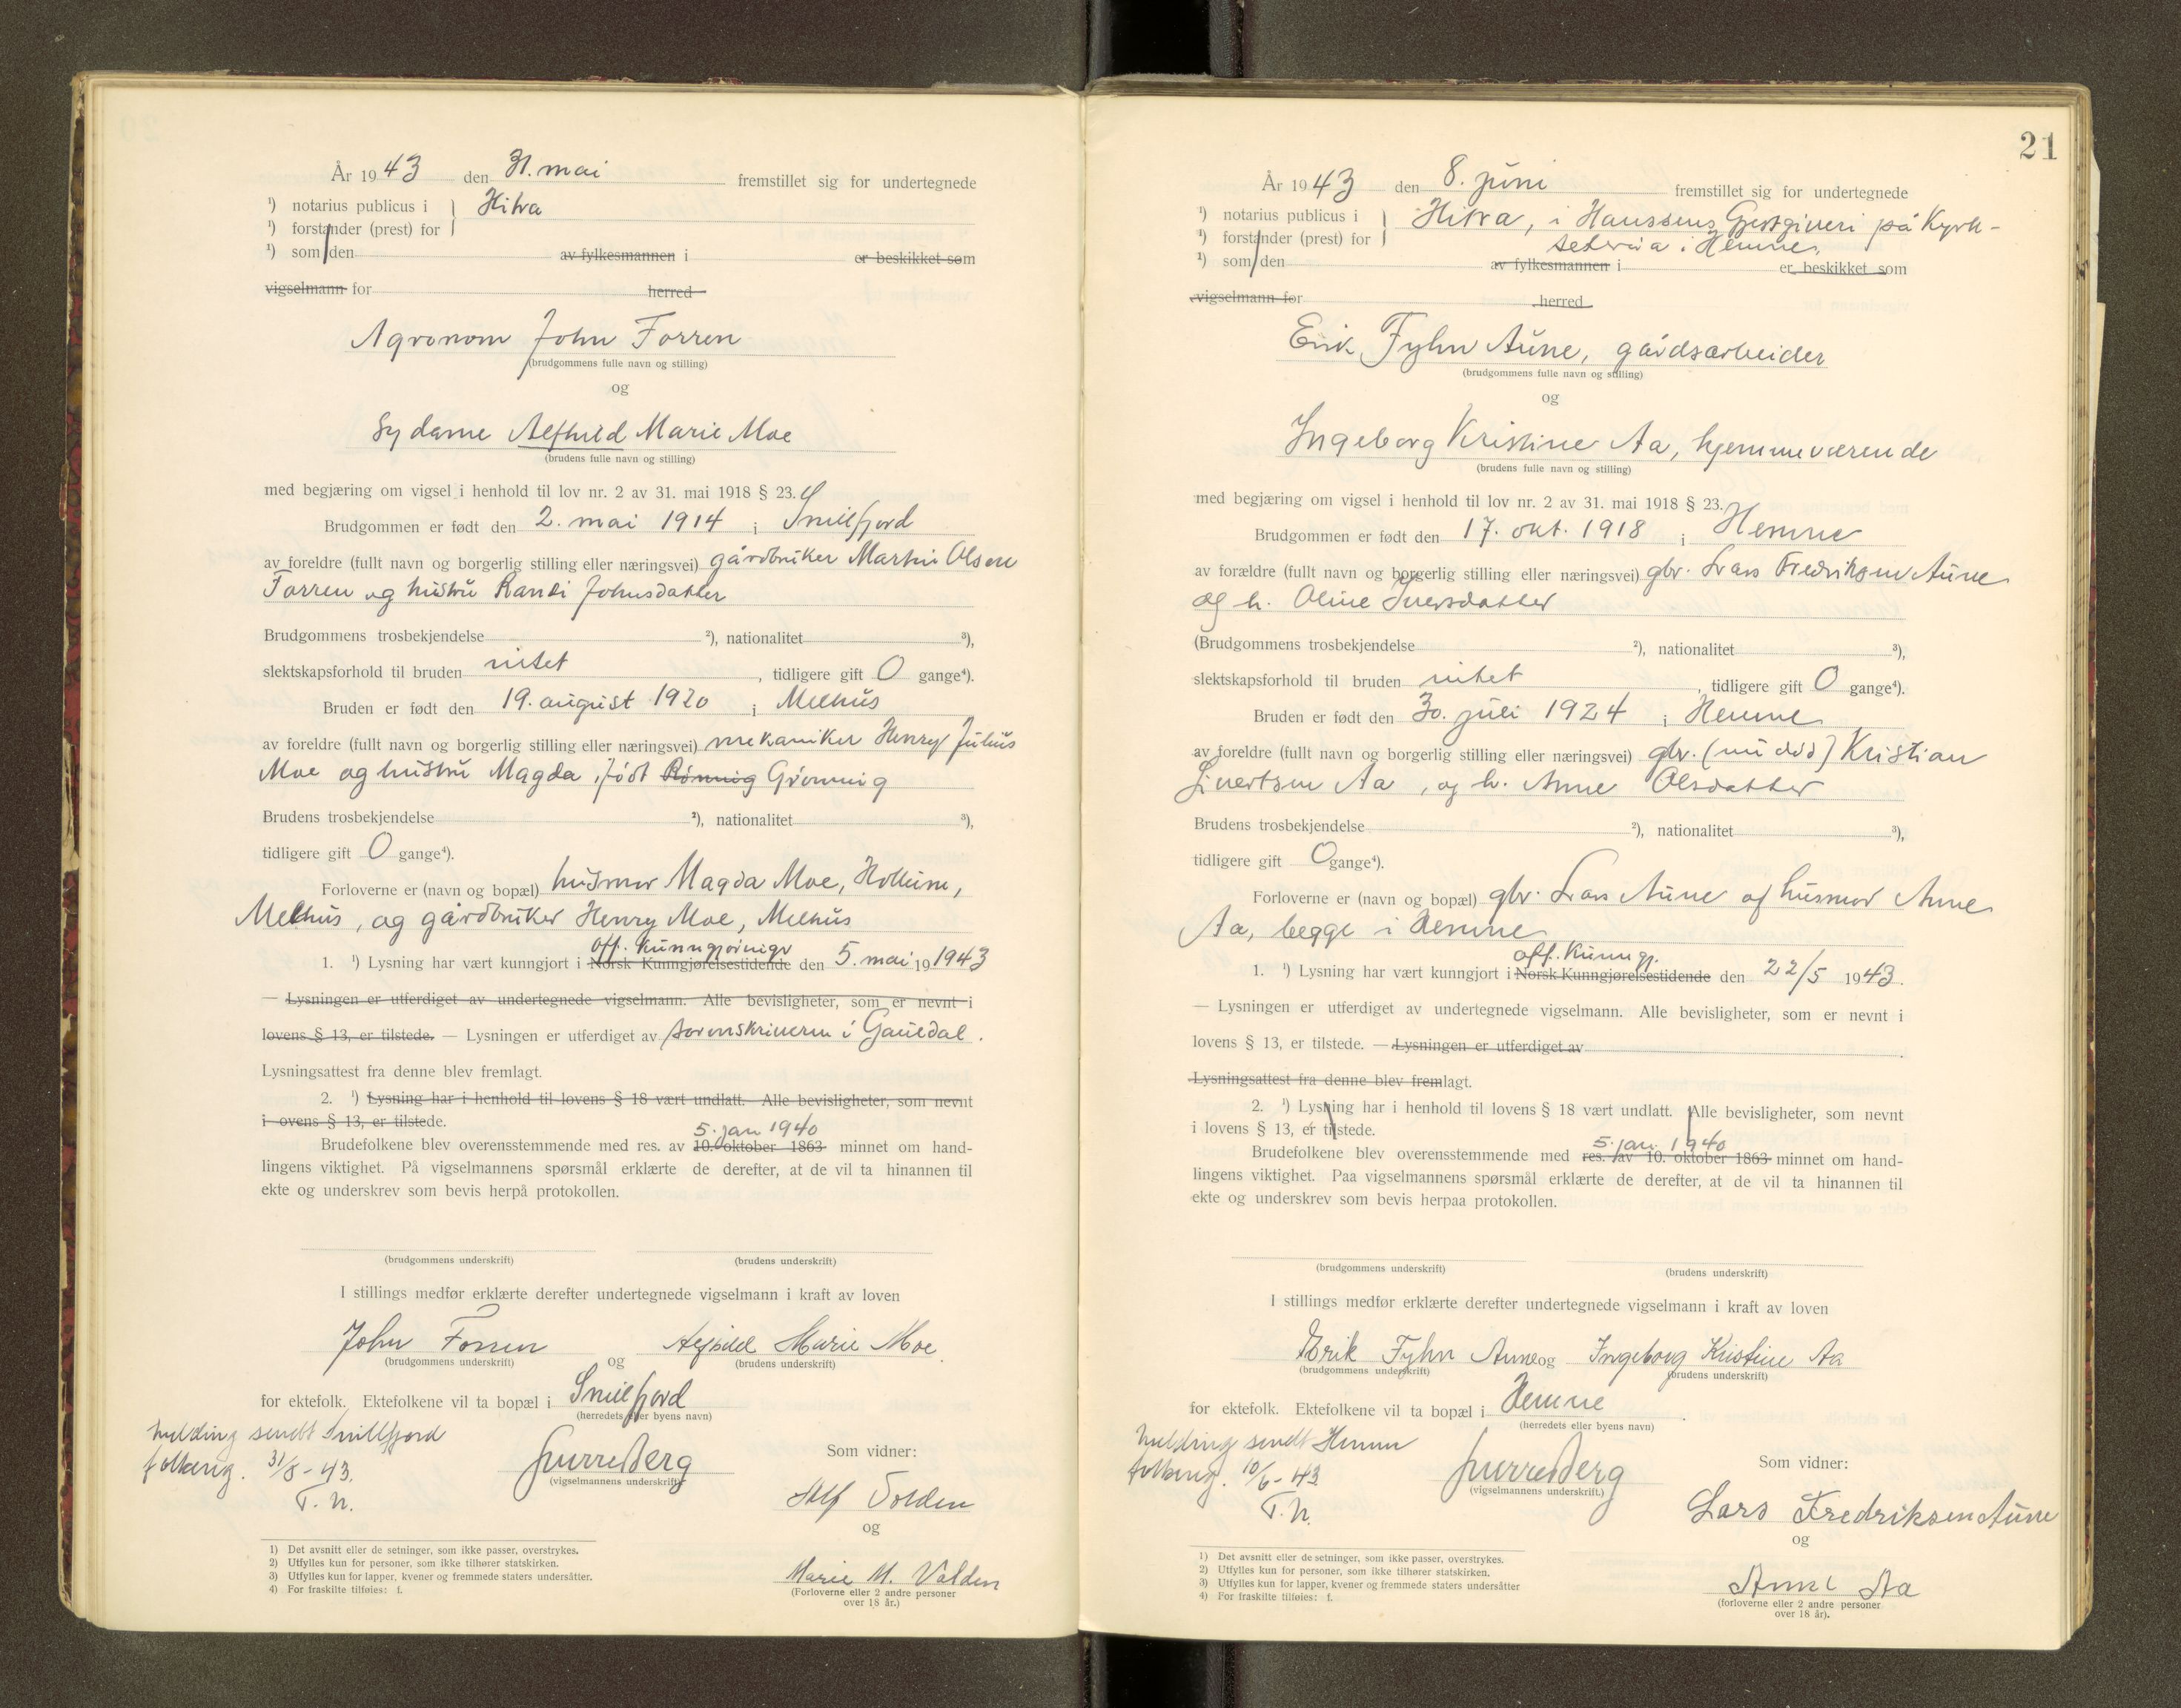 År 1943 den 31. mai fremstillet sig for undertegnede
¹) notarius publicus i } Hitra
¹) forstander (prest) for
¹) som den av fylkesmannen i er beskikket som
vigselmann for herred
Agronom John Forren
(brudgommens fulle navn og stilling)
og
Sydame Alfhild Marie Moe
(brudens fulle navn og stilling)
med begjæring om vigsel i henhold til lov nr. 2 av 31. mai 1918 § 23.
Brudgommen er født den 2. mai 1914 i Snillfjord
av foreldre (fullt navn og borgerlig stilling eller næringsvei) gårdbruker Martin Olsen
Forren og hustru Randi Johnsdatter
Brudgommens trosbekjendelse ²), nationalitet ³),
slektskapsforhold til bruden intet, tidligere gift 0 gange⁴).
Bruden er født den 19. august 1920 i Melhus
av foreldre (fullt navn og borgerlig stilling eller næringsvei) mekaniker Henry Julius
Moe og hustru Magda, født Rønning Grønning
Brudens trosbekjendelse ²), nationalitet ³),
tidligere gift 0 gange⁴).
Forloverne er (navn og bopæl) husmor Magda Moe,
Melhus, og gårdbruker Henry Moe, Melhus
off. kunngjøringer
1. ¹) Lysning har vært kunngjort i Norsk Kunngjørelsestidende den 5. mai 19 1943
— Lysningen er utferdiget av undertegnede vigselmann. Alle bevisligheter, som er nevnt i
lovens § 13, er tilstede. — Lysningen er utferdiget av sorenskriveren i Gauldal.
Lysningsattest fra denne blev fremlagt.
2. ¹) Lysning har i henhold til lovens § 18 vært undlatt. Alle bevisligheter, som nevnt
i ovens § 13, er tilstede.
5. jan 1940
Brudefolkene blev overensstemmende med res. av 10. oktober 1863 minnet om hand-
lingens viktighet. På vigselmannens spørsmål erklærte de derefter, at de vil ta hinannen til
ekte og underskrev som bevis herpå protokollen.
(brudgommens underskrift) (brudens underskrift)
I stillings medfør erklærte derefter undertegnede vigselmann i kraft av loven
John Forren og Alfhild Marie Moe
(brudgommens underskrift) (brudens underskrift)
for ektefolk. Ektefolkene vil ta bopæl i Snillfjord
(herredets eller byens navn)
Melding sendt Snillfjord
folkereg. 31/5 - 43.
T. N.
Sverre Berg
(vigselmannens underskrift)
Som vidner:
Alf Volden
og
Marie M. Volden
(Forloverne eller 2 andre personer
over 18 år.)
1) Det avsnitt eller de setninger, som ikke passer, overstrykes.
2) Utfylles kun for personer, som ikke tilhører statskirken.
3) Utfylles kun for lapper, kvener og fremmede staters undersåtter.
4) For fraskilte tilføies: f.
21
År 1943 den 8. juni fremstillet sig for undertegnede
¹) notarius publicus i } Hitra, i Hanssens Gjestgiveri på Kyrk-
¹) forstander (prest) for sæterøra i Hemne.
¹) som den av fylkesmannen i er beskikket som
vigselmann for herred
Erik Fyhn Aune, gårdsarbeider
(brudgommens fulle navn og stilling)
og
Ingeborg Kristine Aa, hjemmeværende
(brudens fulle navn og stilling)
med begjæring om vigsel i henhold til lov nr. 2 av 31. mai 1918 § 23.
Brudgommen er født den 17. okt. 1918 i Hemne
av forældre (fullt navn og borgerlig stilling eller næringsvei) gbr. Lars Fredriksen Aune
og h. Oline Iversdatter
(Brudgommens trosbekjendelse ²), nationalitet ³),
slektskapsforhold til bruden intet, tidligere gift 0 gange⁴).
Bruden er født den 30. juli 1924 i Hemne
av foreldre (fullt navn og borgerlig stilling eller næringsvei) gbr. (nu død) Kristian
Sivertsen Aa, og h. Anne Olsdatter
Brudens trosbekjendelse ²), nationalitet ³),
tidligere gift 0 gange⁴).
Forloverne er (navn og bopæl) gbr. Lars Aune og husmor Anne
Aa, begge i Hemne
off. Kunngj.
1. ¹) Lysning har vært kunngjort i Norsk Kunngjørelsestidende den 22/5 1943.
— Lysningen er utferdiget av undertegnede vigselmann. Alle bevisligheter, som er nevnt i
lovens § 13, er tilstede. — Lysningen er utferdiget av
Lysningsattest fra denne blev fremlagt.
2. ¹) Lysning har i henhold til lovens § 18 vært undlatt. Alle bevisligheter, som nevnt
i lovens § 13, er tilstede.
5. jan. 1940
Brudefolkene blev overensstemmende med res. av 10. oktober 1863 minnet om hand-
lingens viktighet. Paa vigselmannens spørsmål erklærte de derefter, at de vil ta hinannen til
ekte og underskrev som bevis herpaa protokollen.
(brudgommens underskrift) (brudens underskrift)
I stillings medfør erklærte derefter undertegnede vigselmann i kraft av loven
Erik Fyhn Aune og Ingeborg Kristine Aa
(brudgommens underskrift) (brudens underskrift)
for ektefolk. Ektefolkene vil ta bopæl i Hemne.
(herredets eller byens navn)
Melding sendt Hemne
folkereg. 10/6 - 43
T. N.
Sverre Berg
(vigselmannens underskrift.)
Som vidner:
Lars Fredriksen Aune
og
Anne Aa
(forloverne eller 2 andre personer
over 18 år).
1) Det avsnitt eller de setninger, som ikke passer, overstrykes.
2) Utfylles kun for personer, som ikke tilhører statskirken.
3) Utfylles kun for lapper, kvener og fremmede staters undersåtter
4) For fraskilte tilføies: f.